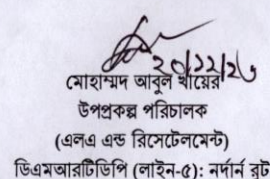 ২০/১১/২৩
মোহাম্মদ আবুল খায়ের
উপপ্রকল্প পরিচালক
(এলএ এন্ড রিসেটেলমেন্ট)
ডিএমআরটিডিপি (লাইন-৫): নর্দার্ন রুট